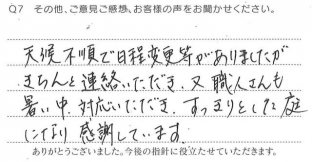 Q7 その他、ご意見ご感想、お客様の声をお聞かせください。
天候不順で日程変更等がありましたが
きちんと連絡いただき、又職人さんも
暑い中、対応いただき、すっきりとした庭
になり感謝しています。
ありがとうございました。今後の指針に役立たせていただきます。